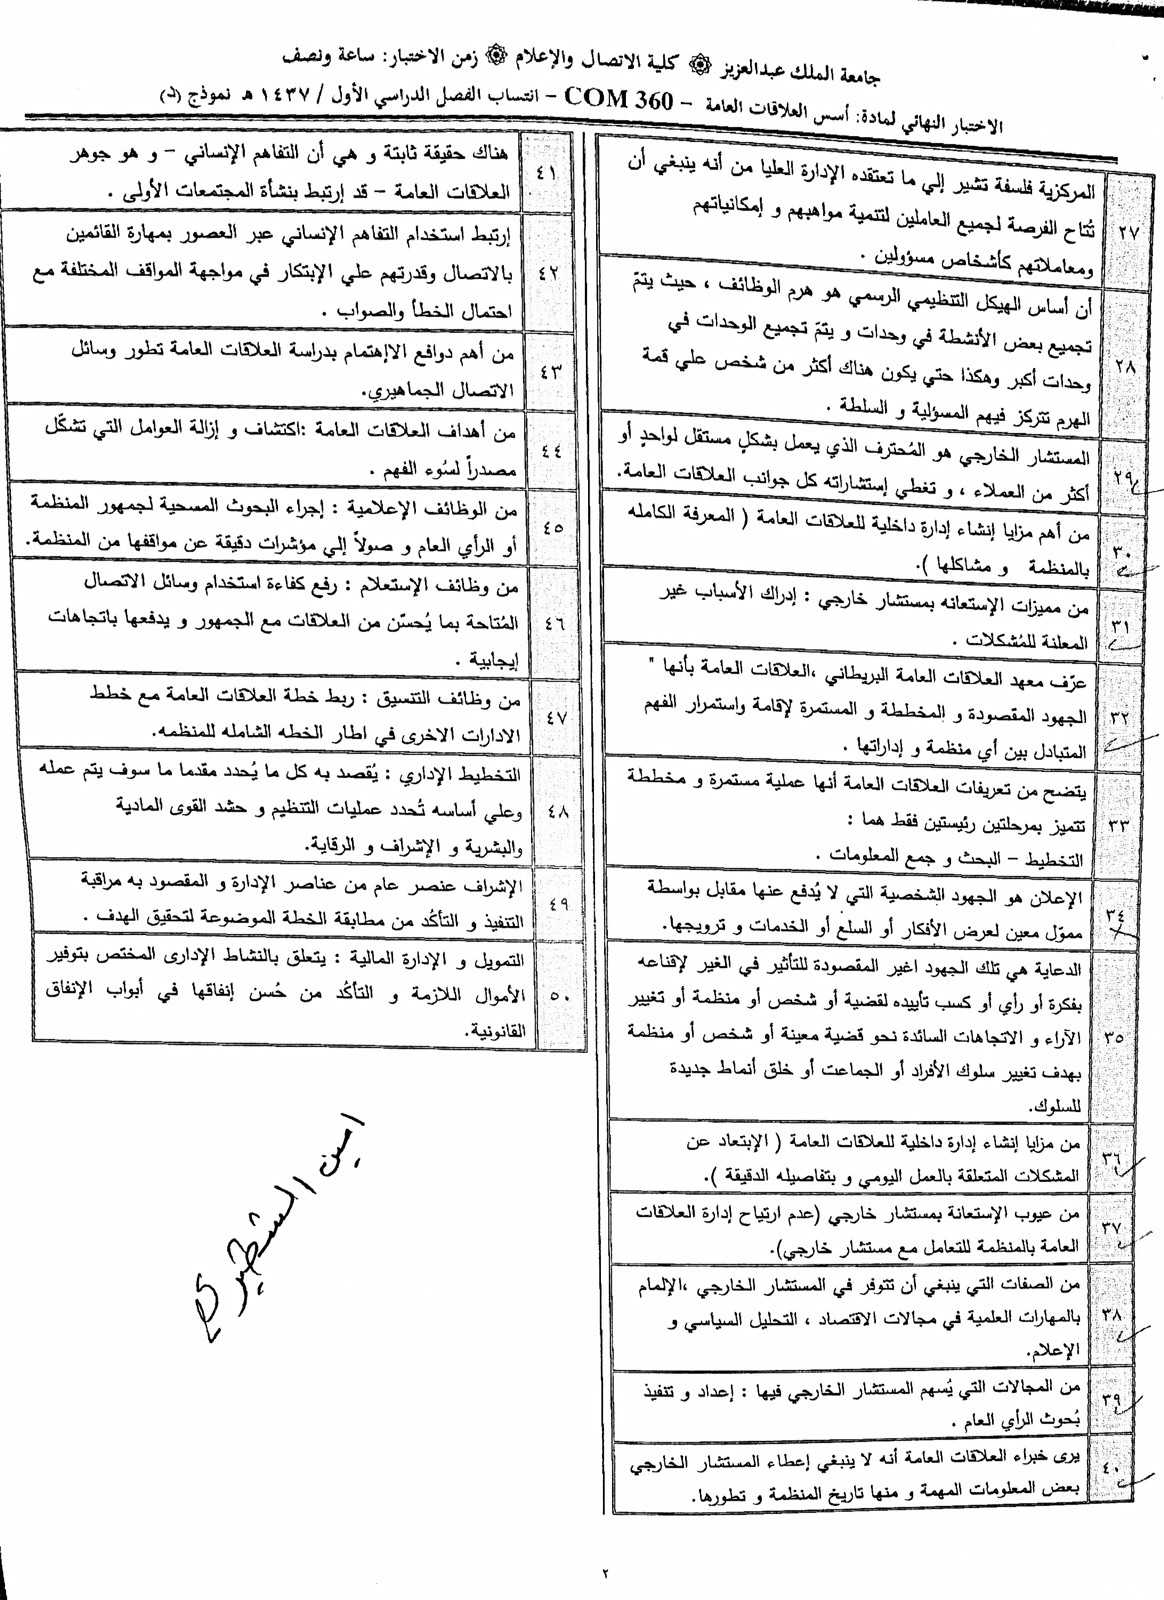 جامعة الملك عبدالعزيز ۞ كلية الاتصال والإعلام ۞ زمن الاختبار: ساعة ونصف
الاختبار النهائي لمادة: أسس العلاقات العامة - COM 360 – انتساب الفصل الدراسي الأول / ١٤٣٧ هـ نموذج (د)
٢٧
المركزية فلسفة تشير إلي ما تعتقده الإدارة العليا من أنه ينبغي أن
تُتاح الفرصة لجميع العاملين لتنمية مواهبهم و إمكانياتهم
ومعاملاتهم كأشخاص مسؤولين .
٢٨
أن أساس الهيكل التنظيمي الرسمي هو هرم الوظائف ، حيث يتمّ
تجميع بعض الأنشطة في وحدات و يتمّ تجميع الوحدات في
وحدات أكبر وهكذا حتي يكون هناك أكثر من شخص علي قمة
الهرم تتركز فيهم المسؤلية و السلطة .
٢٩
المستشار الخارجي هو المُحترف الذي يعمل بشكلٍ مستقل لواحدٍ أو
أكثر من العملاء ، و تغطي إستشاراته كل جوانب العلاقات العامة.
٣٠
من أهم مزايا إنشاء إدارة داخلية للعلاقات العامة ( المعرفة الكامله
بالمنظمة و مشاكلها ).
٣١
من مميزات الإستعانه بمستشار خارجي : إدراك الأسباب غير
المعلنة للمُشكلات .
٣٢
عرّف معهد العلاقات العامة البريطاني ،العلاقات العامة بأنها "
الجهود المقصودة و المخططة و المستمرة لإقامة واستمرار الفهم
المتبادل بين أي منظمة و إداراتها .
٣٣
يتضح من تعريفات العلاقات العامة أنها عملية مستمرة و مخططة
تتميز بمرحلتين رئيستين فقط هما :
التخطيط – البحث و جمع المعلومات .
٣٤
الإعلان هو الجهود الشخصية التي لا يُدفع عنها مقابل بواسطة
مموّل معين لعرض الأفكار أو السلع أو الخدمات و ترويجها.
٣٥
الدعاية هي تلك الجهود اغير المقصودة للتأثير في الغير لإقناعه
بفكرة أو رأي أو كسب تأييده لقضية أو شخص أو منظمة أو تغيير
الآراء و الاتجاهات السائدة نحو قضية معينة أو شخص أو منظمة
بهدف تغيير سلوك الأفراد أو الجماعت أو خلق أنماط جديدة
للسلوك.
٣٦
من مزايا إنشاء إدارة داخلية للعلاقات العامة ( الإبتعاد عن
المشكلات المتعلقة بالعمل اليومي و بتفاصيله الدقيقة ).
٣٧
من عيوب الإستعانة بمستشار خارجي (عدم ارتياح إدارة العلاقات
العامة بالمنظمة للتعامل مع مستشار خارجي).
٣٨
من الصفات التي ينبغي أن تتوفر في المستشار الخارجي ،الإلمام
بالمهارات العلمية في مجالات الاقتصاد ، التحليل السياسي و
الإعلام.
٣٩
من المجالات التي يُسهم المستشار الخارجي فيها : إعداد و تنفيذ
بُحوث الرأي العام .
٤٠
يرى خبراء العلاقات العامة أنه لا ينبغي إعطاء المستشار الخارجي
بعض المعلومات المهمة و منها تاريخ المنظمة و تطورها.
٤١
هناك حقيقة ثابتة و هي أن التفاهم الإنساني – و هو جوهر
العلاقات العامة – قد إرتبط بنشأة المجتمعات الأولى .
٤٢
إرتبط استخدام التفاهم الإنساني عبر العصور بمهارة القائمين
بالاتصال وقدرتهم علي الإبتكار في مواجهة المواقف المختلفة مع
احتمال الخطأ والصواب .
٤٣
من أهم دوافع الإهتمام بدراسة العلاقات العامة تطور وسائل
الاتصال الجماهيري.
٤٤
من أهداف العلاقات العامة :اكتشاف و إزالة العوامل التي تشكّل
مصدراً لسُوء الفهم .
٤٥
من الوظائف الإعلامية : إجراء البحوث المسحية لجمهور المنظمة
أو الرأي العام و صولاً إلي مؤشرات دقيقة عن مواقفها من المنظمة.
٤٦
من وظائف الإستعلام : رفع كفاءة استخدام وسائل الاتصال
المُتاحة بما يُحسّن من العلاقات مع الجمهور و يدفعها باتجاهات
إيجابية .
٤٧
من وظائف التنسيق : ربط خطة العلاقات العامة مع خطط
الادارات الاخرى في اطار الخطه الشامله للمنظمه.
٤٨
التخطيط الإداري : يُقصد به كل ما يُحدد مقدما ما سوف يتم عمله
وعلي أساسه تُحدد عمليات التنظيم و حشد القوى المادية
والبشرية و الإشراف و الرقاية.
٤٩
الإشراف عنصر عام من عناصر الإدارة و المقصود به مراقبة
التنفيذ و التأكد من مطابقة الخطة الموضوعة لتحقيق الهدف .
٥٠
التمويل و الإدارة المالية : يتعلق بالنشاط الإدارى المختص بتوفير
الأموال اللازمة و التأكد من حُسن إنفاقها في أبواب الإنفاق
القانونية.
امين الشطيري
٢